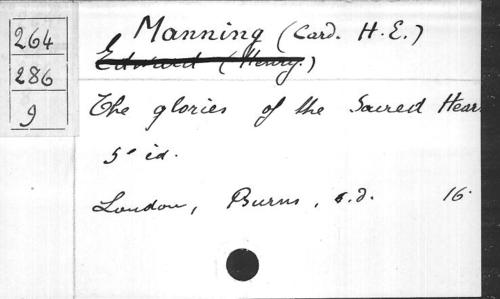 264
286
9
Manning (Card. H.E.)
Edward (Henry.)
The glories of the Sacred Hear
5ᵉ éd.
London, Burns, s.d. 16